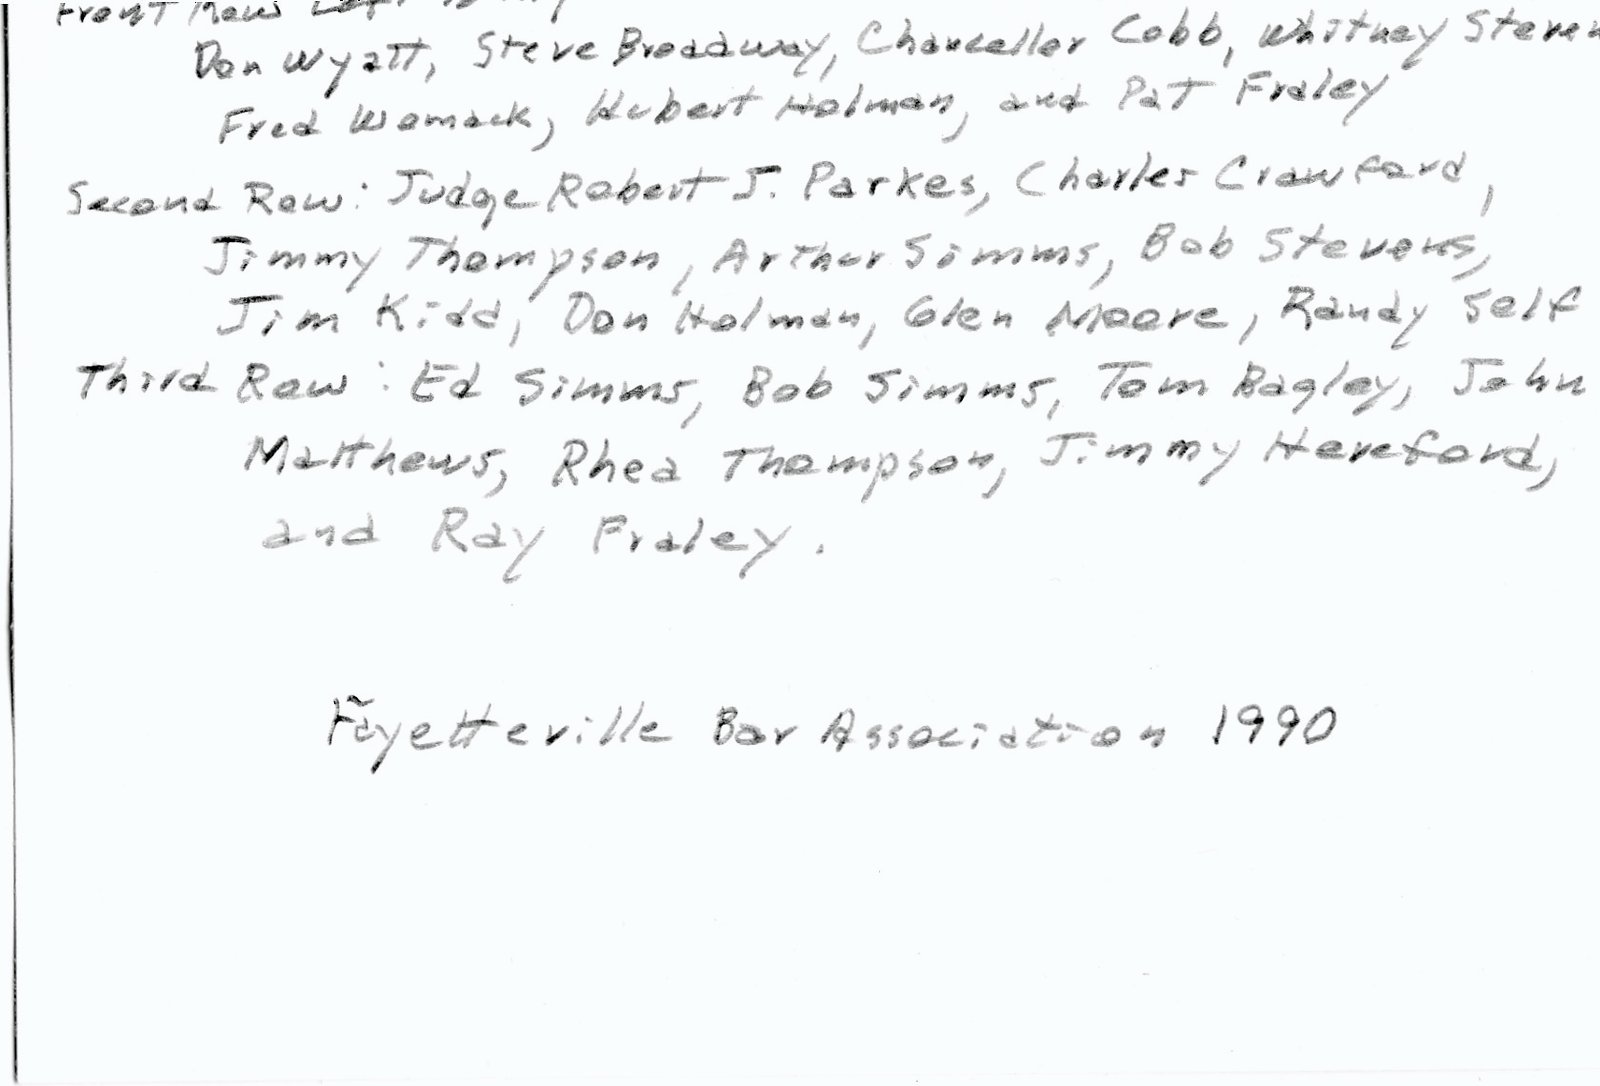 Front Row Left
Don Wyatt, Steve Broadway, Chancellor Cobb, Whitney Steven
Fred Womack, Hubert Holman, and Pat Fraley
Second Row: Judge Robert J. Parkes, Charles Crawford,
Jimmy Thompson, Arthur Simms, Bob Stevens,
Jim Kidd, Don Holman, Glen Moore, Randy Self
Third Row: Ed Simms, Bob Simms, Tom Bagley, John
Matthews, Rhea Thompson, Jimmy Hereford,
and Ray Fraley.
Fayetteville Bar Association 1990